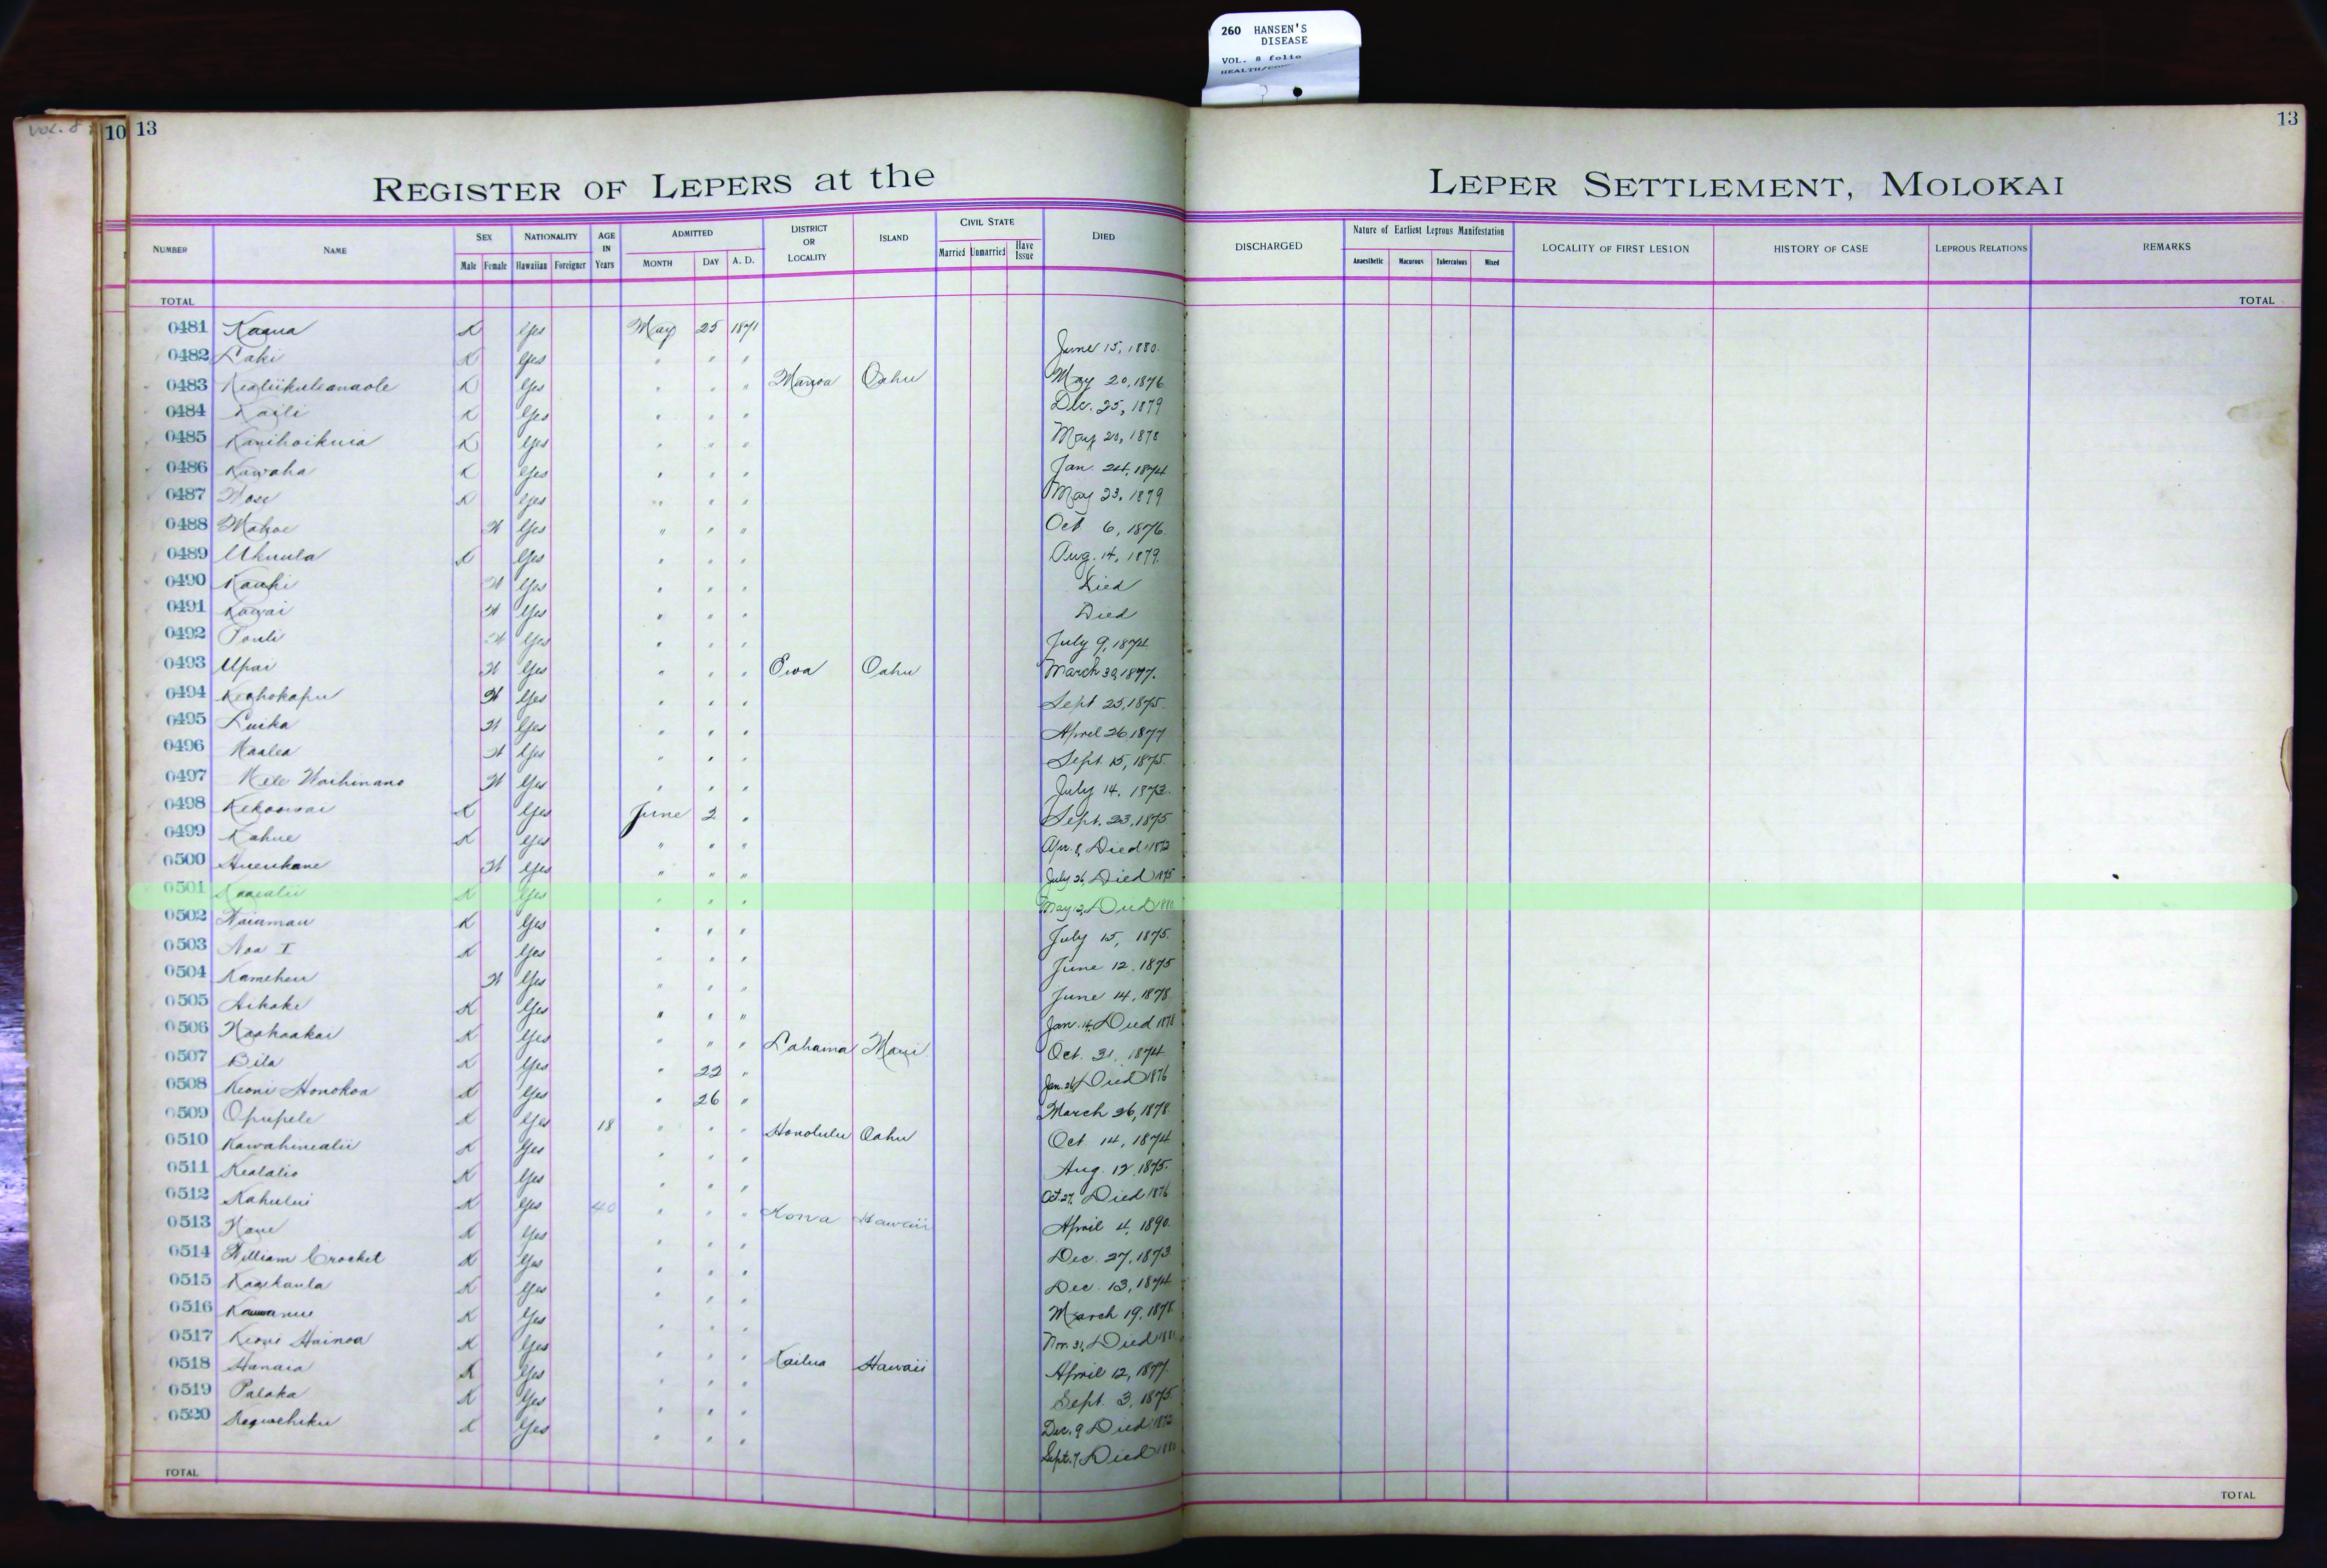 260 HANSEN'S
DISEASE
VOL. 8 folio
Vol. 8
10 13
13
REGISTER OF LEPERS at the LEPER SETTLEMENT, MOLOKAI
NUMBER NAME SEX Male Female NATIONALITY Hawaiian Foreigner AGE IN Years ADMITTED MONTH DAY A. D. DISTRICT OR LOCALITY ISLAND CIVIL STATE Married Unmarried Have Issue DIED DISCHARGED Nature of Earliest Leprous Manifestation Anaesthetic Macurous Tuberculous Mixed LOCALITY OF FIRST LESION HISTORY OF CASE LEPROUS RELATIONS REMARKS
TOTAL TOTAL
0481 Kaaua K Yes May 25 1871
0482 Laki K Yes " " " June 15, 1880.
0483 Kealiikuleanaole K Yes " " " Manoa Oahu May 20, 1876
0484 Kaili K Yes " " " Dec. 25, 1879
0485 Kanihoikuia K Yes " " " May 20, 1878
0486 Kawaha K Yes " " " Jan. 24, 1874
0487 K Yes " " " May 23, 1879
0488 Mahoe W Yes " " " Oct 6, 1876.
0489 Ukuula K Yes " " " Aug. 14, 1879.
0490 Kauhi W Yes " " " Died
0491 Kawai W Yes " " " Died
0492 Pouli W Yes " " " July 9, 1874
0493 Upai W Yes " " " Ewa Oahu March 30, 1877.
0494 Keahokapu W Yes " " " Sept 25, 1875.
0495 Luika W Yes " " " April 26 1877
0496 Maalea W Yes " " " Sept. 15, 1875.
0497 Mele Waihinano W Yes " " " July 14, 1873.
0498 Kekoowai K Yes June 2 " Sept. 23, 1875
0499 Kahue K Yes " " " Apr. 8, Died 1872
0500 Hueukane W Yes " " " July 26, Died 1875
0501 Kaaealii K Yes " " " May 12, Died 1880
0502 Naiamau K Yes " " " July 15, 1875.
0503 Noa I K Yes " " " June 12. 1875
0504 Kameheu W Yes " " " June 14, 1878
0505 Aikake K Yes " " " Jan. 14, Died 1878
0506 Naahaakai K Yes " " " Lahaina Maui Oct. 31, 1874
0507 Bila K Yes " 22 " Jan. 26, Died 1876
0508 Keoni Honokoa K Yes " 26 " March 26, 1878
0509 Opupele K Yes 18 " " " Honolulu Oahu Oct 14, 1874
0510 Kawahinealii K Yes " " " Aug. 12. 1875.
0511 Kealalio K Yes " " " Oct. 27, Died 1876
0512 Kahului K Yes 40 " " " Kona Hawaii April 4, 1890.
0513 Kane K Yes " " " Dec. 27, 1873
0514 William Crocket K Yes " " " Dec. 13, 1874
0515 Kaaekaula K Yes " " " March 19, 1878
0516 K Yes " " " Nov. 31, Died
0517 Keoni Hainoa K Yes " " " Kailua Hawaii April 12, 1877.
0518 Hanaia K Yes " " " Sept. 3, 1875.
0519 Palaka K Yes " " " Dec. 9 Died 1872
0520 K Yes " " " Sept. 7, Died
TOTAL TOTAL